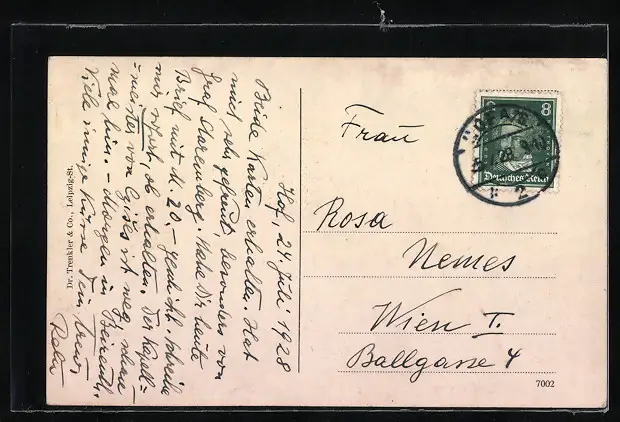 Hof, 24. Juli 1928
Beide Karten erhalten. Hat
mich sehr gefreut, besonders von
Graf Staremberg. Habe Dir heute
Brief mit M. 20.- geschickt schreibe
mir sofort, ob erhalten. Der Kapell-
meister von Gides ist weg, schau
mal hin. - Morgen in
Viele innige Küsse Dein treuer
Dr. Trenkler & Co., Leipzig-St.
Frau
Rosa
Nemes
Wien I.
Ballgasse 4
7002
8
Deutsches Reich